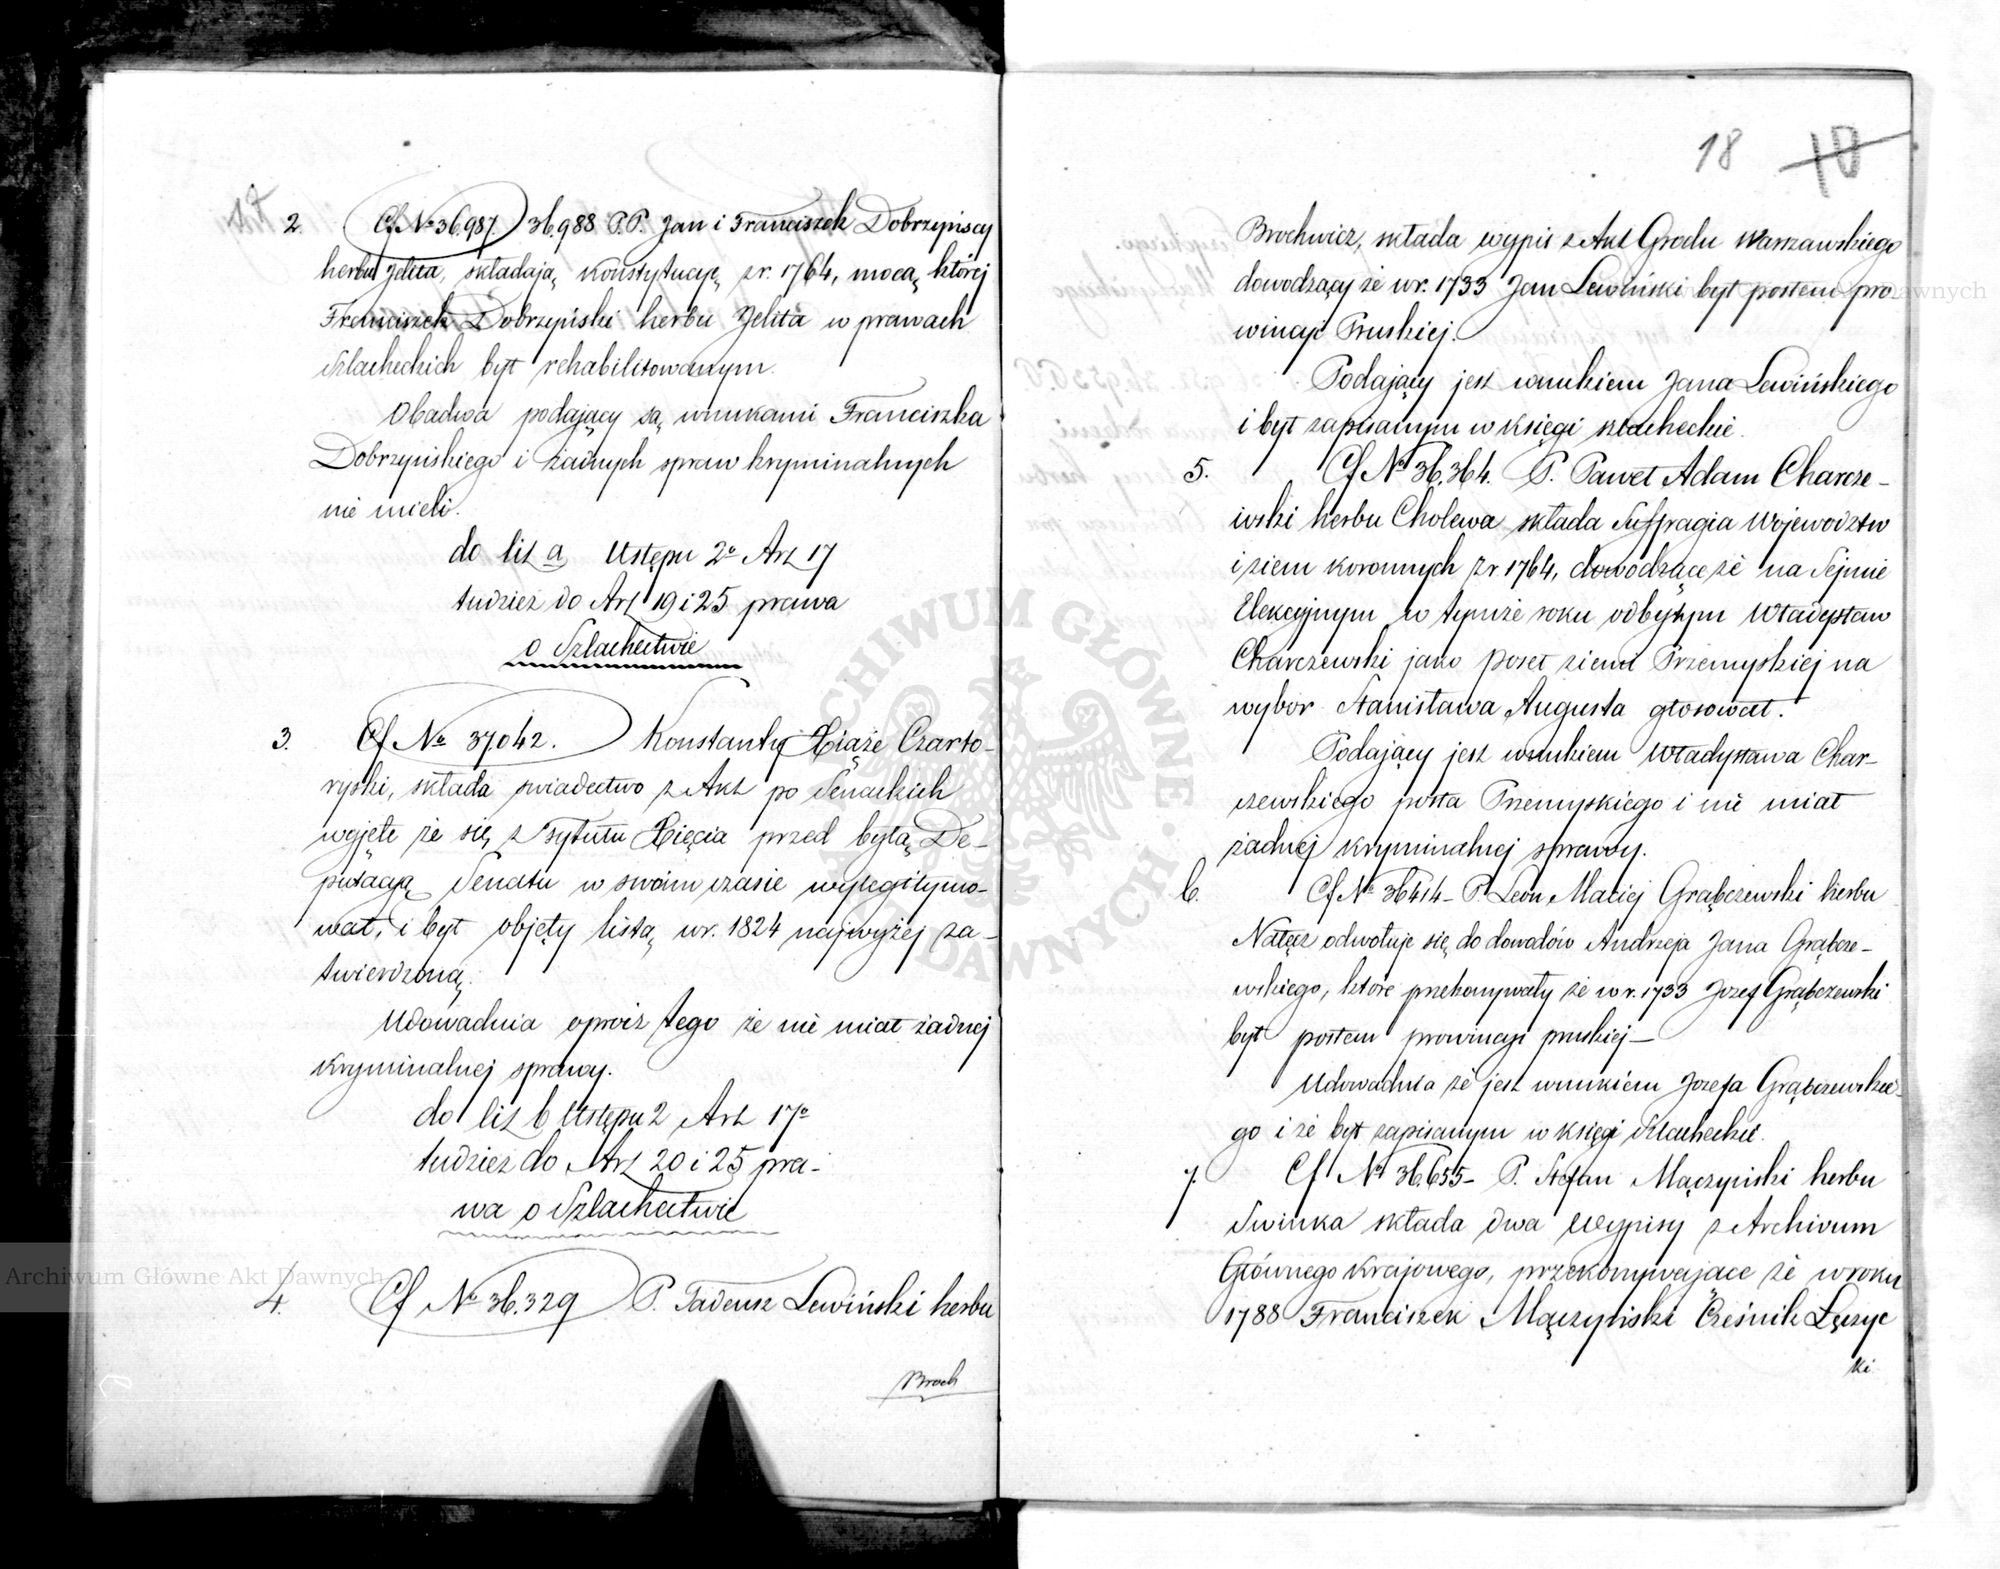 2. Cf No 36.987. 36.988 P.P. Jan i Franciszek Dobrzyńscy
herbu Jelita, składają konstytucyę z r. 1764, mocą której
Franciszek Dobrzyński herbu Jelita w prawach
szlacheckich był rehabilitowanym.
Obadwa podający są wnukami Franciszka
Dobrzyńskiego i żadnych spraw kryminalnych
nie mieli.
do lit a Ustępu 2o Art 17
tudzież do Art 19 i 25 prawa
o Szlachectwie
3. Cf No 37042. Konstanty Xiąże Czarto-
ryski, składa swiadectwo z Akt po Senackich
wyjęte że się z tytułu Xięcia przed byłą De-
putacyą Senatu w swoim czasie wylegitymo-
wał, i był objęty listą w r. 1824 najwyżej za-
twierdzoną.
Udowadnia oprócz tego że nie miał żadnej
kryminalnej sprawy.
do lit b Ustępu 2 Art 17o
tudzież do Art 20 i 25 pra-
wa o Szlachectwie
4. Cf No 36.329 P. Tadeusz Lewiński herbu
Broch
18 10
Brochwicz, składa wypis z Akt Grodu Warszawskiego
dowodzący że w r. 1733 Jan Lewiński był posłem pro
wincyi Pruskiej.
Podający jest wnukiem Jana Lewińskiego
i był zapisanym w księgi szlacheckie.
5. Cf No 36.364. P. Paweł Adam Charcze-
wski herbu Cholewa składa Suffragia Województw
i ziem koronnych z r 1764, dowodzące że na Sejmie
Elekcyjnym w tymże roku odbytym Władysław
Charczewski jako poseł ziemi Przemyskiej na
wybor Stanisława Augusta głosował.
Podający jest wnukiem Władysława Char-
czewskiego posła Przemyskiego i nie miał
żadnej kryminalnej sprawy.
6. Cf No 36414 - P. Leon Maciej Grąbczewski herbu
Nałęcz odwołuje się do dowodów Andrzeja Jana Grąbcze-
wskiego, które przekonywały że w r. 1733 Jozef Grąbczewski
był posłem prowincyi pruskiej -
Udowadnia że jest wnukiem Jozefa Grąbczewskie-
go i że był zapisanym w księgi Szlacheckie.
7. Cf No 36.655 - P. Stefan Mączyński herbu
Swinka składa dwa wypisy z Archivum
Głównego Krajowego, przekonywające że w roku
1788 Franciszek Mączyński Cześnik Łęczyc
ki
ARCHIWUM GŁÓWNE AKT DAWNYCH
Archiwum Główne Akt Dawnych